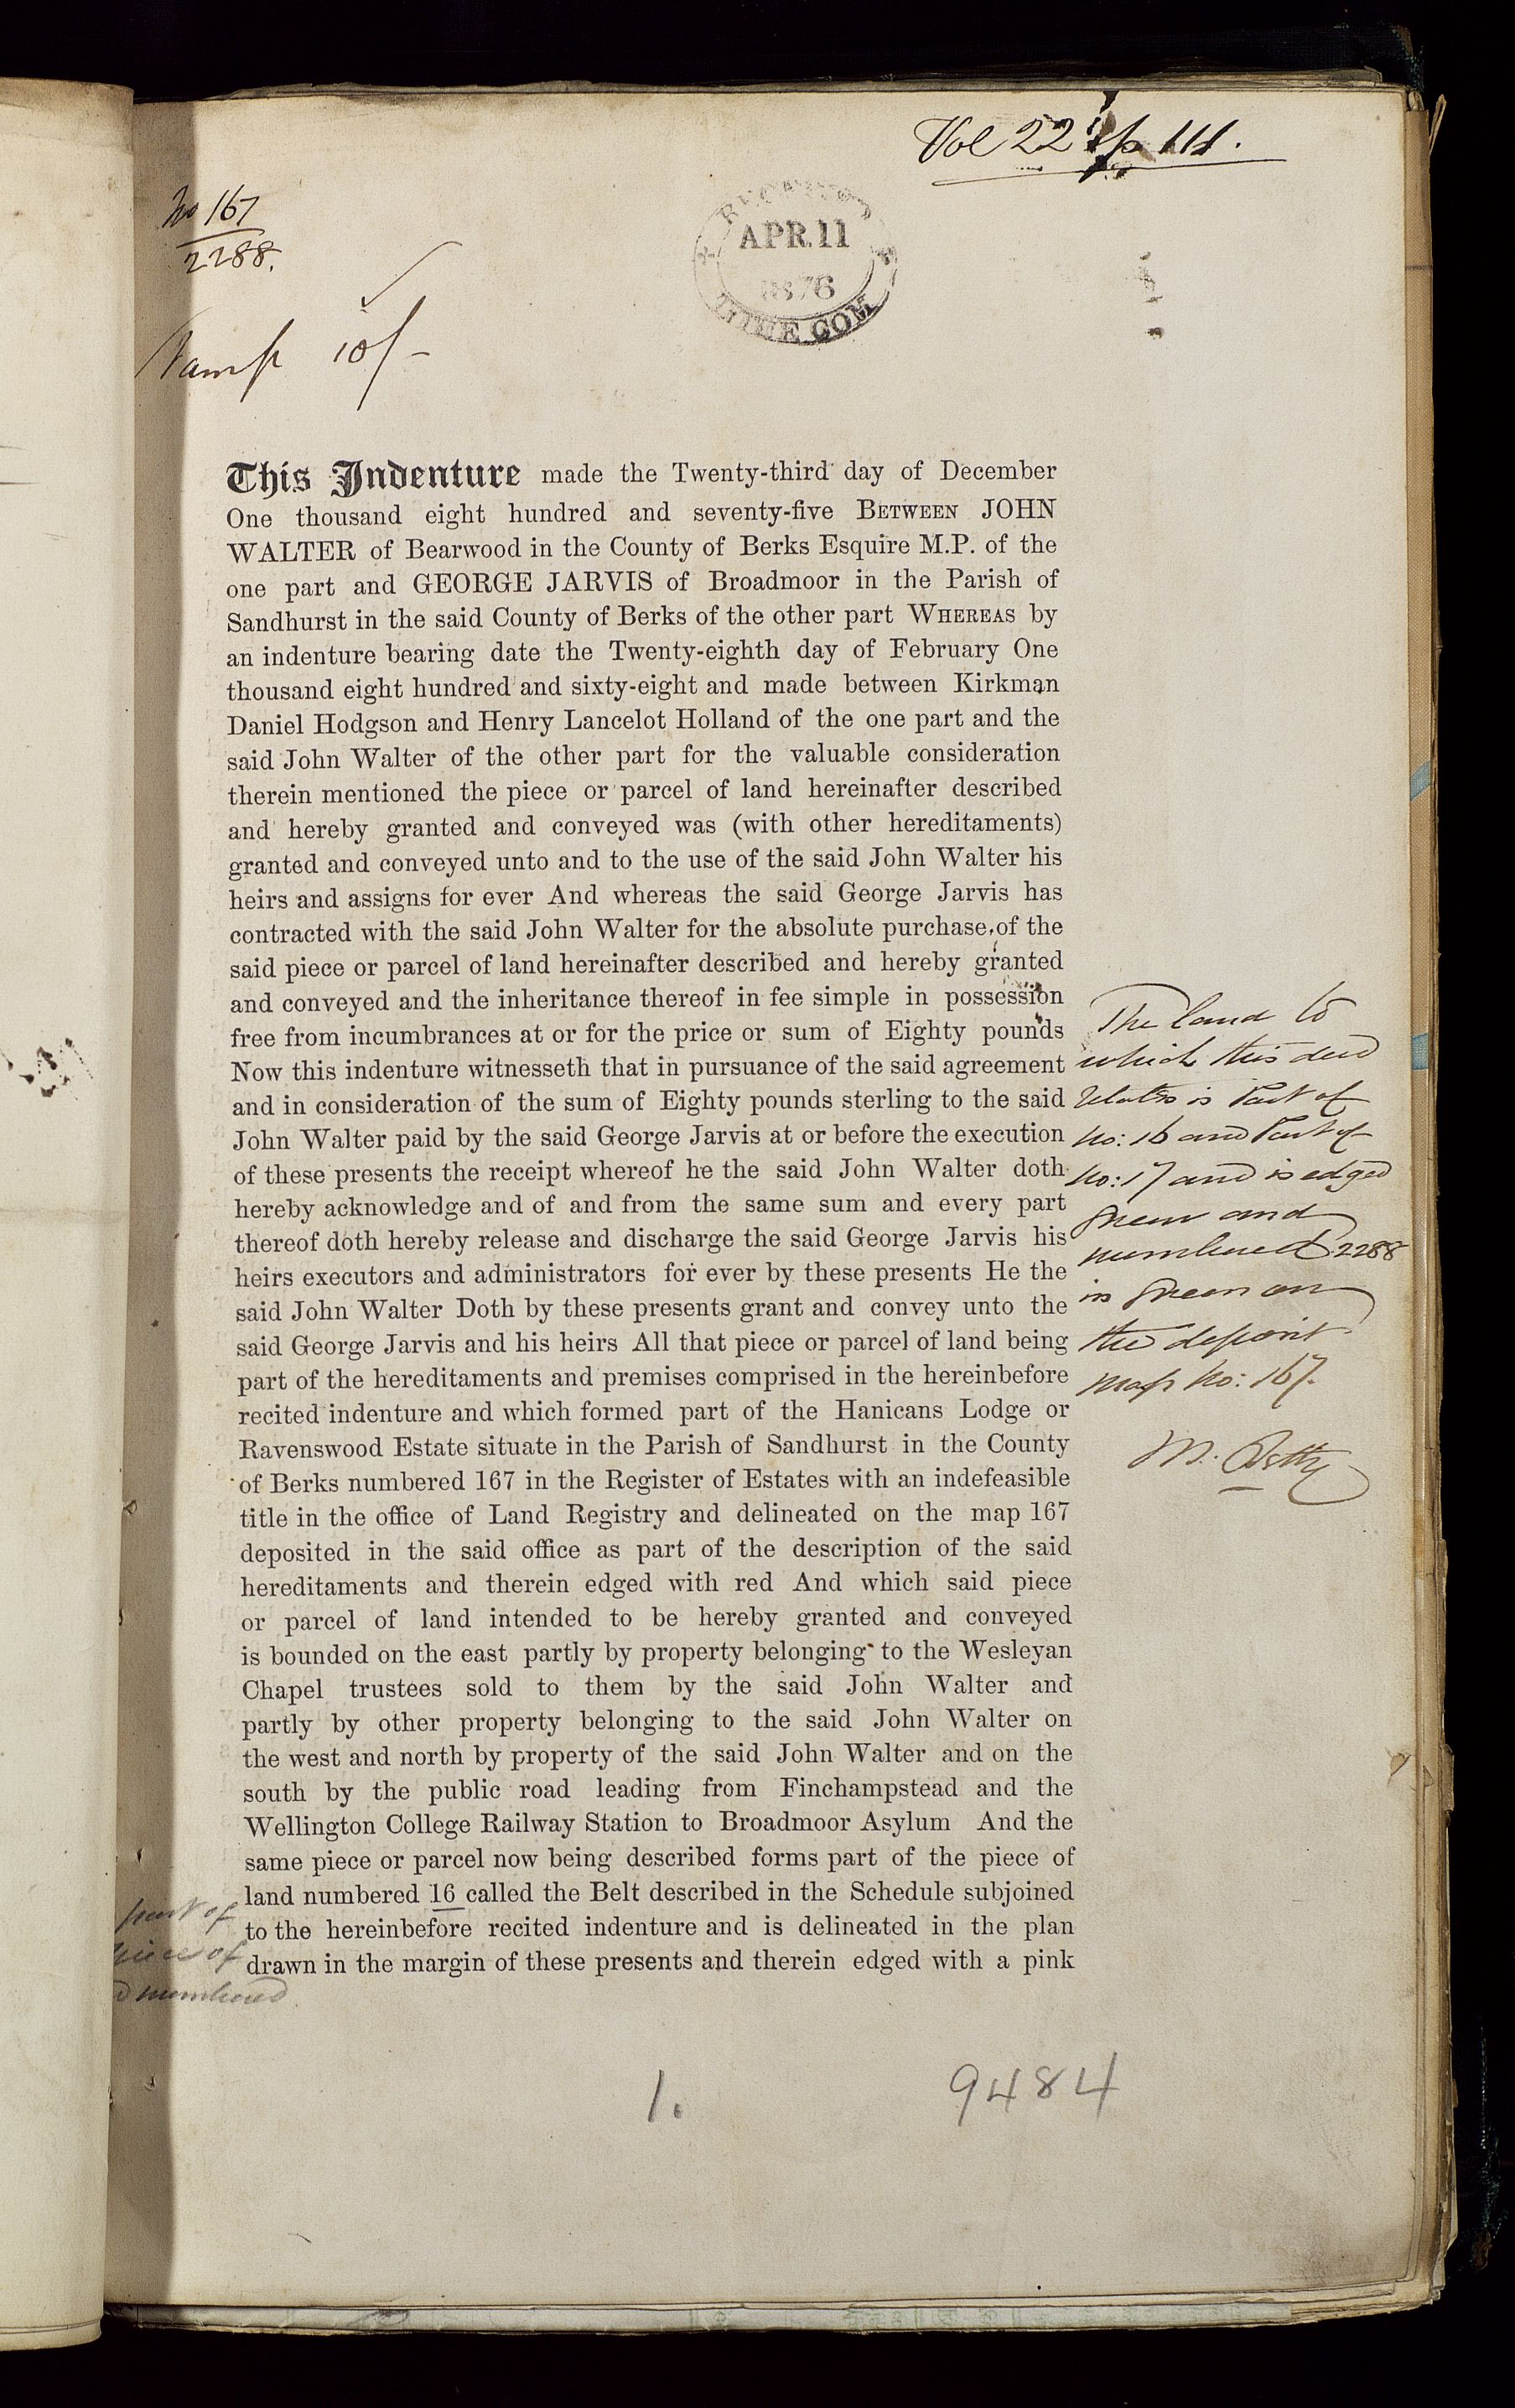 Vol 22 p 111.
No 167
2288.
RECEIVED
APR. 11
1876
TITHE COM
Stamp 10/-
This Indenture made the Twenty-third day of December
One thousand eight hundred and seventy-five BETWEEN JOHN
WALTER of Bearwood in the County of Berks Esquire M.P. of the
one part and GEORGE JARVIS of Broadmoor in the Parish of
Sandhurst in the said County of Berks of the other part WHEREAS by
an indenture bearing date the Twenty-eighth day of February One
thousand eight hundred and sixty-eight and made between Kirkman
Daniel Hodgson and Henry Lancelot Holland of the one part and the
said John Walter of the other part for the valuable consideration
therein mentioned the piece or parcel of land hereinafter described
and hereby granted and conveyed was (with other hereditaments)
granted and conveyed unto and to the use of the said John Walter his
heirs and assigns for ever And whereas the said George Jarvis has
contracted with the said John Walter for the absolute purchase of the
said piece or parcel of land hereinafter described and hereby granted
and conveyed and the inheritance thereof in fee simple in possession
free from incumbrances at or for the price or sum of Eighty pounds
Now this indenture witnesseth that in pursuance of the said agreement
and in consideration of the sum of Eighty pounds sterling to the said
John Walter paid by the said George Jarvis at or before the execution
of these presents the receipt whereof he the said John Walter doth
hereby acknowledge and of and from the same sum and every part
thereof doth hereby release and discharge the said George Jarvis his
heirs executors and administrators for ever by these presents He the
said John Walter Doth by these presents grant and convey unto the
said George Jarvis and his heirs All that piece or parcel of land being
part of the hereditaments and premises comprised in the hereinbefore
recited indenture and which formed part of the Hanicans Lodge or
Ravenswood Estate situate in the Parish of Sandhurst in the County
of Berks numbered 167 in the Register of Estates with an indefeasible
title in the office of Land Registry and delineated on the map 167
deposited in the said office as part of the description of the said
hereditaments and therein edged with red And which said piece
or parcel of land intended to be hereby granted and conveyed
is bounded on the east partly by property belonging to the Wesleyan
Chapel trustees sold to them by the said John Walter and
partly by other property belonging to the said John Walter on
the west and north by property of the said John Walter and on the
south by the public road leading from Finchampstead and the
Wellington College Railway Station to Broadmoor Asylum And the
same piece or parcel now being described forms part of the piece of
land numbered 16 called the Belt described in the Schedule subjoined
to the hereinbefore recited indenture and is delineated in the plan
drawn in the margin of these presents and therein edged with a pink
The land to
which this deed
relates is Part of
No: 16 and Part of
No: 17 and is edged
Green and
numbered 2288
in Green on
the deposit
map No: 167.
part of
piece of
numbered
1.
9484